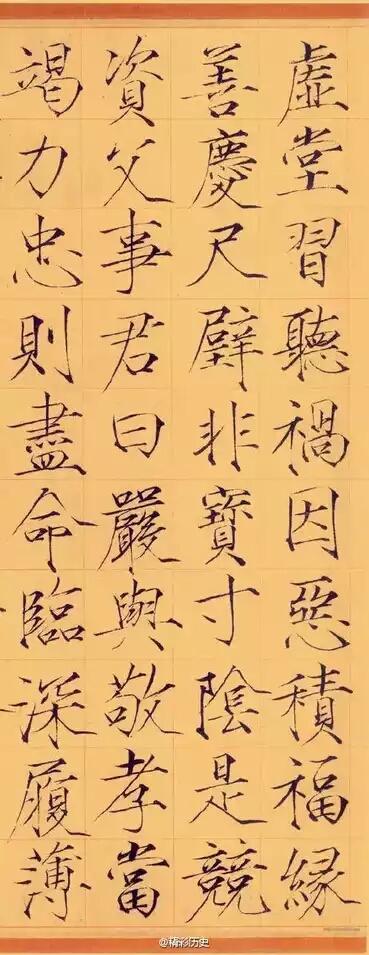 虛堂習聽禍因惡積福緣
善慶尺璧非寶寸陰是競
資父事君曰嚴與敬孝當
竭力忠則盡命臨深履薄
@精彩历史